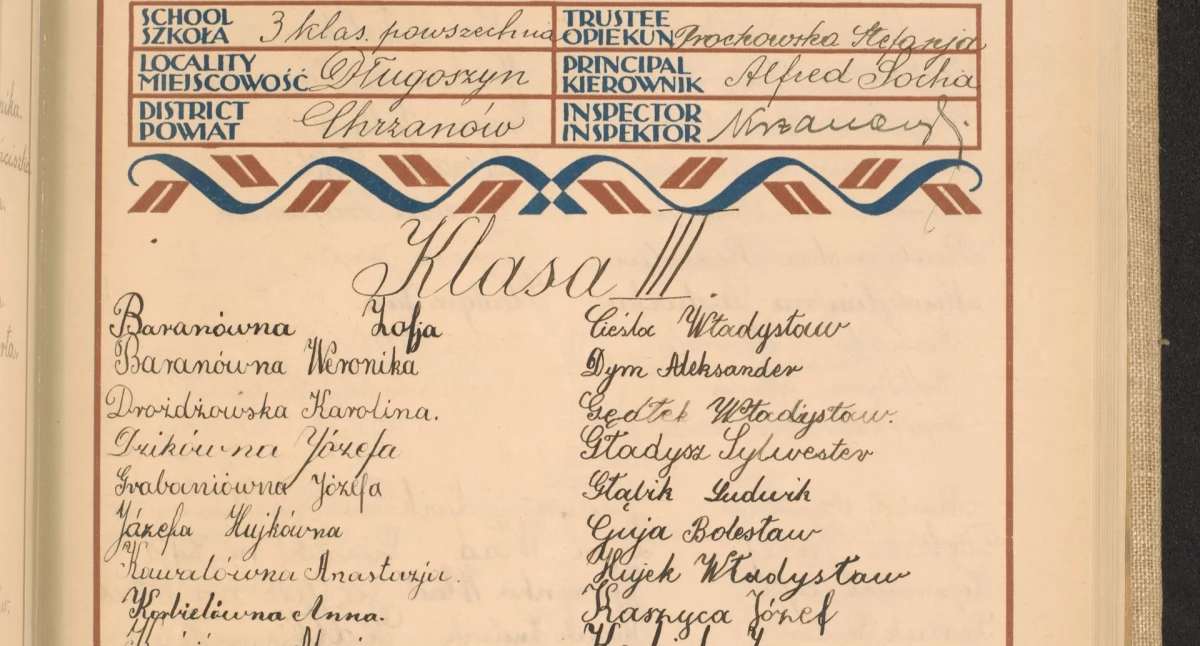 SCHOOL
SZKOŁA
3 klas. powszechna
TRUSTEE
OPIEKUN
Prochowska Stefanja
LOCALITY
MIEJSCOWOŚĆ
Długoszyn
PRINCIPAL
KIEROWNIK
Alfred Socha
DISTRICT
POWIAT
Chrzanów
INSPECTOR
INSPEKTOR
Klasa III.
Baranówna Zofja
Baranówna Weronika
Drożdżowska Karolina.
Dzikówna Józefa
Grabaniówna Józefa
Józefa Hujkówna
Kawalówna Anastazja.
Korbielówna Anna.
Cieśla Władysław
Dym Aleksander
Gędłek Władysław.
Gładysz Sylwester
Głąbik Ludwik
Guja Bolesław
Hujek Władysław
Kaszyca Józef